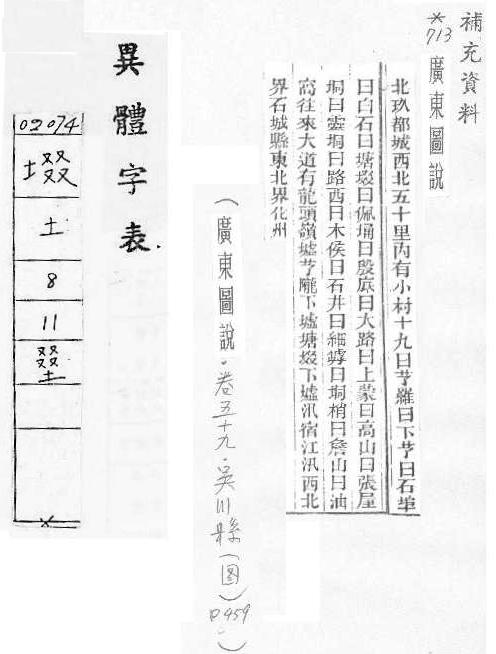 補充資料
*713 廣東圖說
北玖都城西北五十里内有小村十九曰羅曰下曰石埠
曰白石曰塘㙍曰佩埇曰殷底曰大路曰上蒙曰高山曰張屋
垌曰雲垌曰路西曰木侯曰石井曰細曰垌梢曰詹山曰油
窩往來大道有龍頭嶺墟隴下墟塘㙍下墟汛宿江汛西北
界石城縣東北界化州
(廣東圖說·卷五十九·吳川縣(图)P459·)
異體字表.
02074
㙍
土
8
11